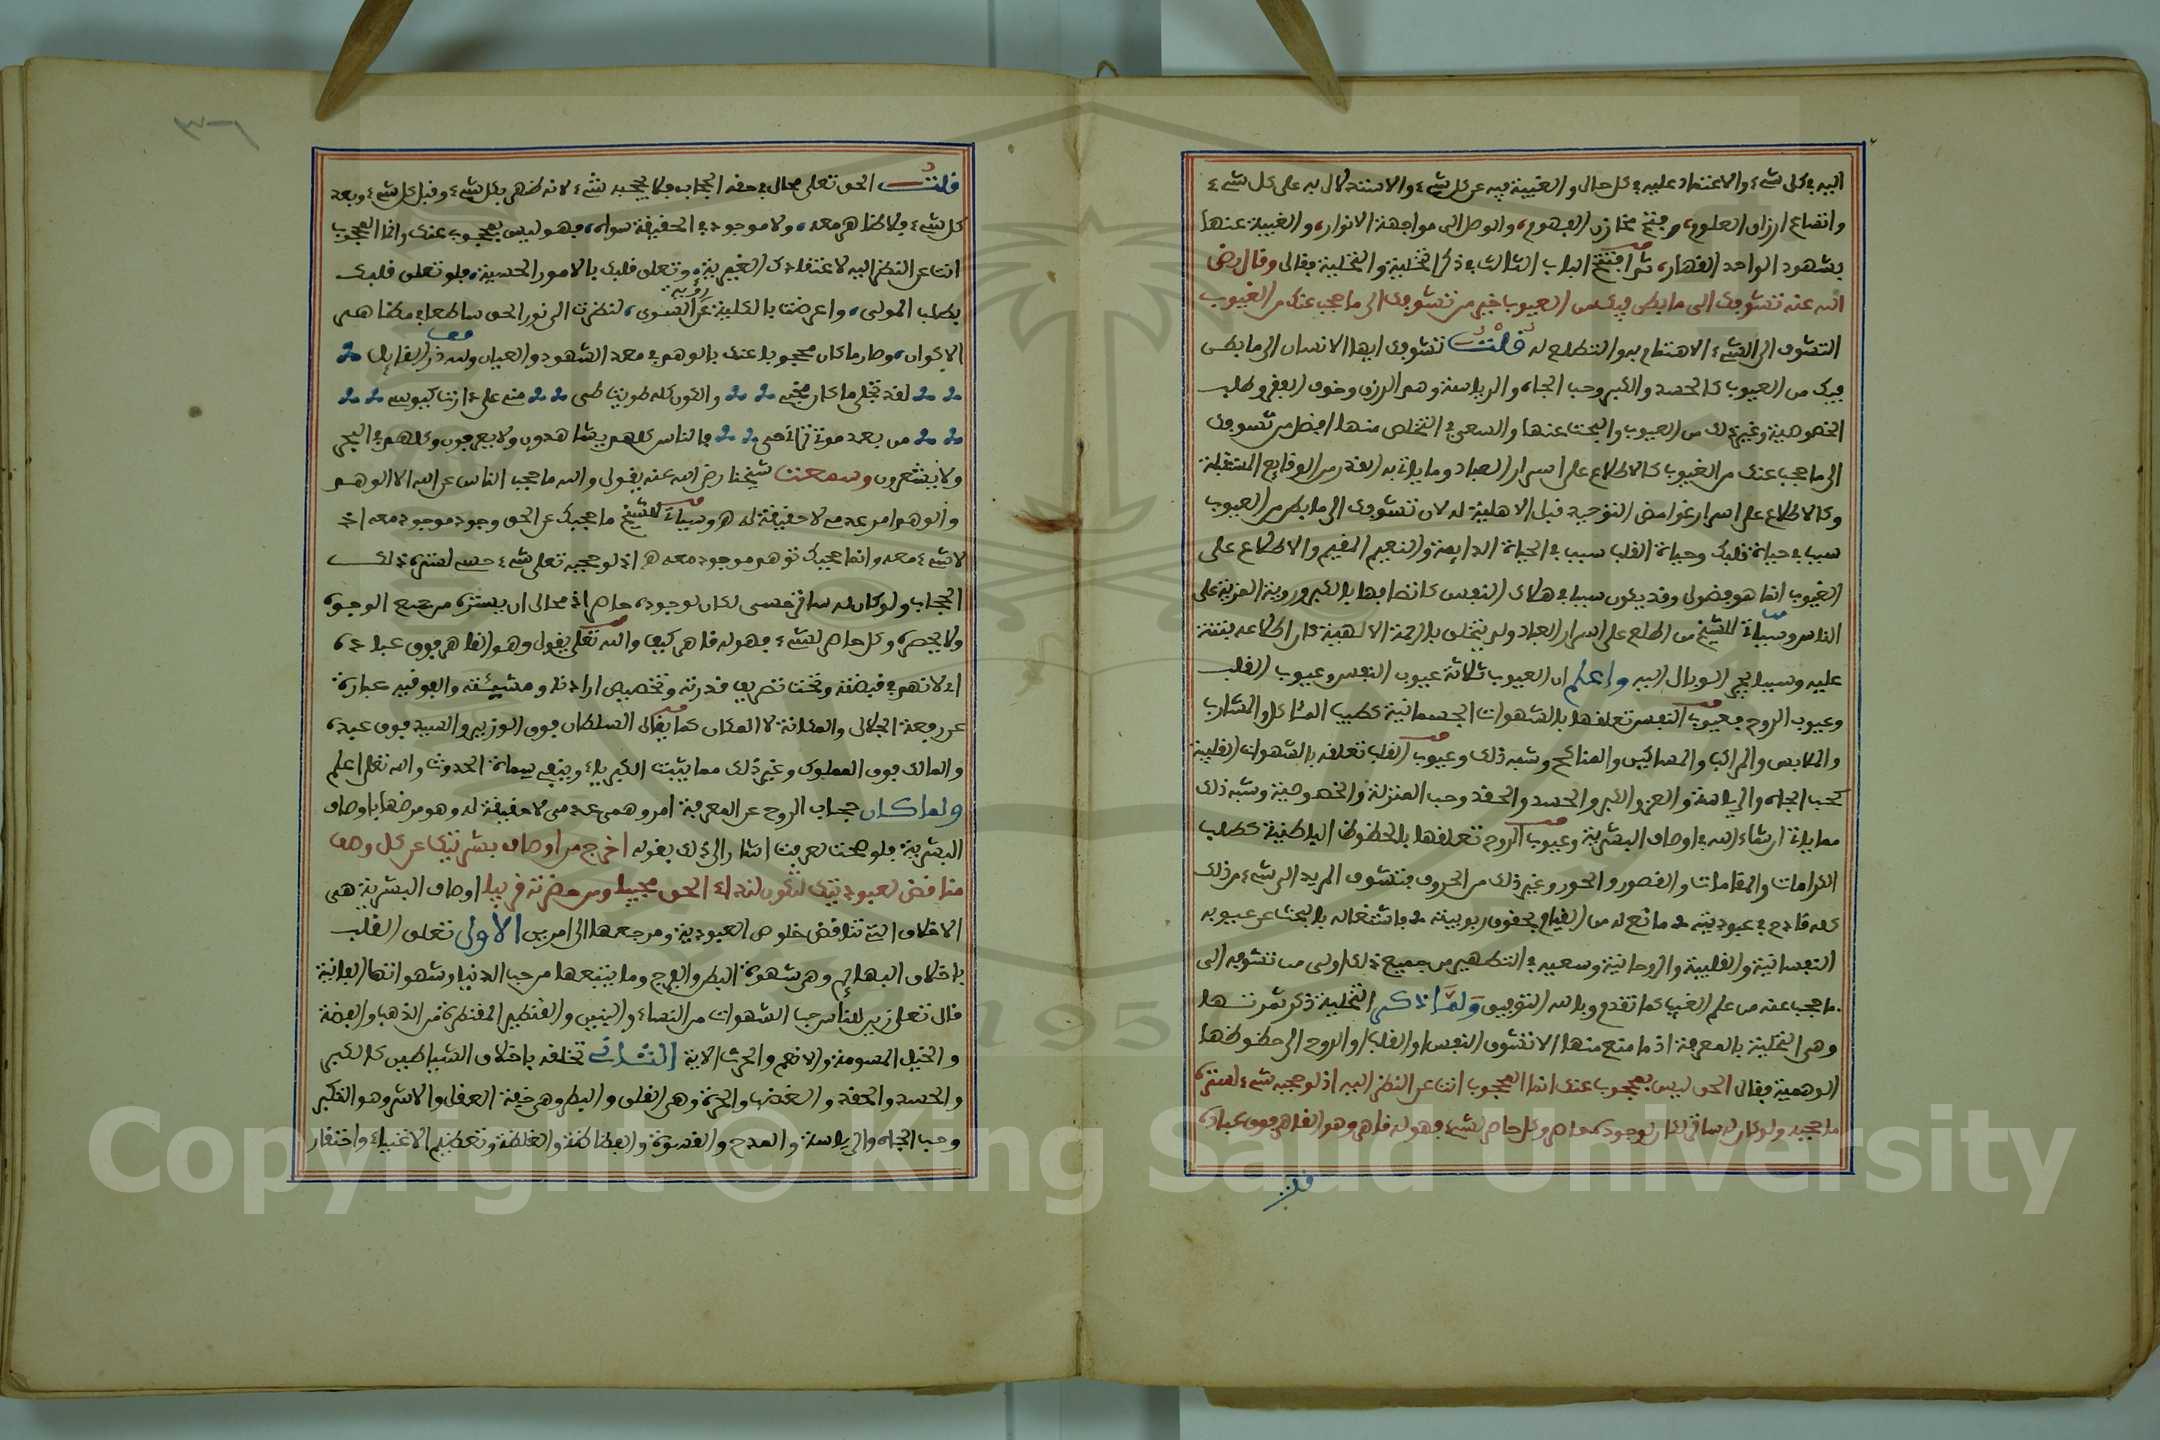 اليه في كل شيء والاعتماد عليه في كل حال والغيبة فيه عن كل شيء والاستدلال به على كل شيء
واتساع ارزاق العلوم، وفتح مخازن الفهوم، والوصل الى مواجهة الانوار، والغيبة عنها
بشهود الواحد القهار، ثم افتتح الباب الثالث في ذكر التخلية والتحلية فقال وقال رضي
الله عنه تشوفك الى ما بطن فيك من العيوب خير من تشوفك الى ما حجب عنك من الغيوب
التشوف الى الشيء الاهتمام به والتطلع له قلت تشوفك ايها الانسان الى ما بطن
فيك من العيوب كالحسد والكبر وحب الجاه والرياسة وهم الرزق وخوف الفقر وطلب
الخصوصية وغير ذلك من العيوب والبحث عنها والسعي في التخلص منها افضل من تشوفك
الى ما حجب عنك من الغيوب كالاطلاع على اسرار العباد وما يات به القدر من الوقايع المستقبلة
وكالاطلاع على اسرار غوامض التوحيد قبل الاهلية له لان تشوفك الى ما بطن من العيوب
سبب في حياة قلبك وحياة القلب سبب في الحياة الدايمة والنعيم المقيم والاطلاع على
الغيوب انما هو فضول وقد يكون سببا في هلاك النفس كاتصافها بالكبر ورؤية المزية على
الناس وسيات للشيخ من اطلع على اسرار العباد ولم يتخلق بالرحمة الالهية كان اطلاعه فتنة
عليه وسببا يجر الوبال اليه واعلم ان العيوب ثلاثة عيوب النفس وعيوب القلب
وعيوب الروح فعيوب النفس تعلقها بالشهوات الجسمانية كطيب المئاكل والمشارب
والملابس والمراكب والمساكن والمناكح وشبه ذلك وعيوب القلب تعلقه بالشهوات القلبية
كحب الجاه والرياسة والعز والكبر والحسد والحقد وحب المنزلة والخصوصية وشبه ذلك
مما ياتي ان شاء الله في اوصاف البشرية وعيوب الروح تعلقها بالحظوظ الباطنية كطلب
الكرامات والمقامات والقصور والحور وغير ذلك من الحروف فتشوف المريد الى شيء من ذلك
كله قادح في عبوديته مانع له من القيام بحقوق ربوبيته فاشتغاله بالبحث عن عيوبه
النفسانية والقلبية والروحانية وسعيه في التطهير من جميع ذلك اولى من تشوفه الى
ما حجب عنه من علم الغيب كما تقدم وبالله التوفيق ولما ذكر التخلية ذكر ثمرتها
وهي التحلية بالمعرفة اذ ما منع منها الا تشوف النفس او القلب او الروح الى حظوظها
الوهمية فقال الحق ليس بمحجوب عنك انما المحجوب انت عن النظر اليه اذ لو حجبه شيء لستره
ما حجبه ولو كان له ساتر لكان لوجوده حاصر وكل حاصر لشيء فهو له قاهر وهو القاهر فوق عباده
قلت
قلت الحق تعلى محال في حقه الحجاب فلا يحجبه شيء لانه ظهر بكل شيء وقبل كل شيء وبعد
كل شيء فلا ظاهر معه، ولا موجود في الحقيقة سواه، فهو ليس بمحجوب عنك وانما المحجوب
انت عن النظر اليه لاعتقادك الغيرية، وتعلق قلبك بالامور الحسية، فلو تعلق قلبك
بطلب المولى، واعرضت بالكلية عن رؤية السوى، لنظرت الى نور الحق ساطعا في مظاهر
الاكوان، وصار ما كان محجوبا عنك بالوهم في معد الشهود والعيان ولله در القايل
لقد تجلى ما كان مخبى والكون كله طويت طي مني علي دارت كئوسي
من بعد موتي تراني حي فالناس كلهم يشاهدون ولا يعرفون وكلهم في البحر
ولا يشعرون وسمعت شيخنا رضي الله عنه يقول والله ما حجب الناس عن الله الا الوهم
والوهم امر عدمي لا حقيقة له هـ وسيات للشيخ ما حجبك عن الحق وجود موجود معه اذ
لا شيء معه وانما حجبك توهم موجود معه هـ اذ لو حجبه تعلى شيء حسي لستره ذلك
الحجاب ولو كان له ساتر حسي لكان لوجوده حاصر اذ محال ان يستره من جميع الوجوه
ولا يحصره وكل حاصر لشيء فهو له قاهر كيف والله تعلى يقول وهو القاهر فوق عباده
اي لانهم في قبضته وتحت تصريف قدرته وتخصيص ارادته ومشيئته والفوقية عبارة
عن رفعة الجلال والمكانة لا المكان كما يقال السلطان فوق الوزير والسيد فوق عبده
والمالك فوق المملوك وغير ذلك مما يثبت الكبرياء وينفي سمات الحدوث والله تعلى اعلم
ولما كان حجاب الروح عن المعرفة امر وهمي عدمي لا حقيقة له وهو مرضها باوصاف
البشرية فلو صحت لعرفت اشار الى ذلك بقوله اخرج من اوصاف بشريتك عن كل وصف
مناقض لعبوديتك لتكون لنداء الحق مجيبا ومن حضرته قريبا اوصاف البشرية هي
الاخلاق التي تناقض خلوص العبودية ومرجعها الى امرين الاول تعلق القلب
باخلاق البهائم وهي شهوة البطن والفرج وما يتبعها من حب الدنيا وشهواتها الفانية
قال تعلى زين للناس حب الشهوات من النساء والبنين والقنطير المقنطرة من الذهب والفضة
والخيل المسومة والانعم والحرث الاية الثاني تخلقه باخلاق الشياطين كالكبر
والحسد والحقد والغضب والحدة وهي القلق والبطر وهي خفة العقل والاشر وهو التكبر
وحب الجاه والرياسة والمدح والقسوة والفظاظة والغلظة وتعظيم الاغنياء واحتقار
Copyright © King Saud University
1957